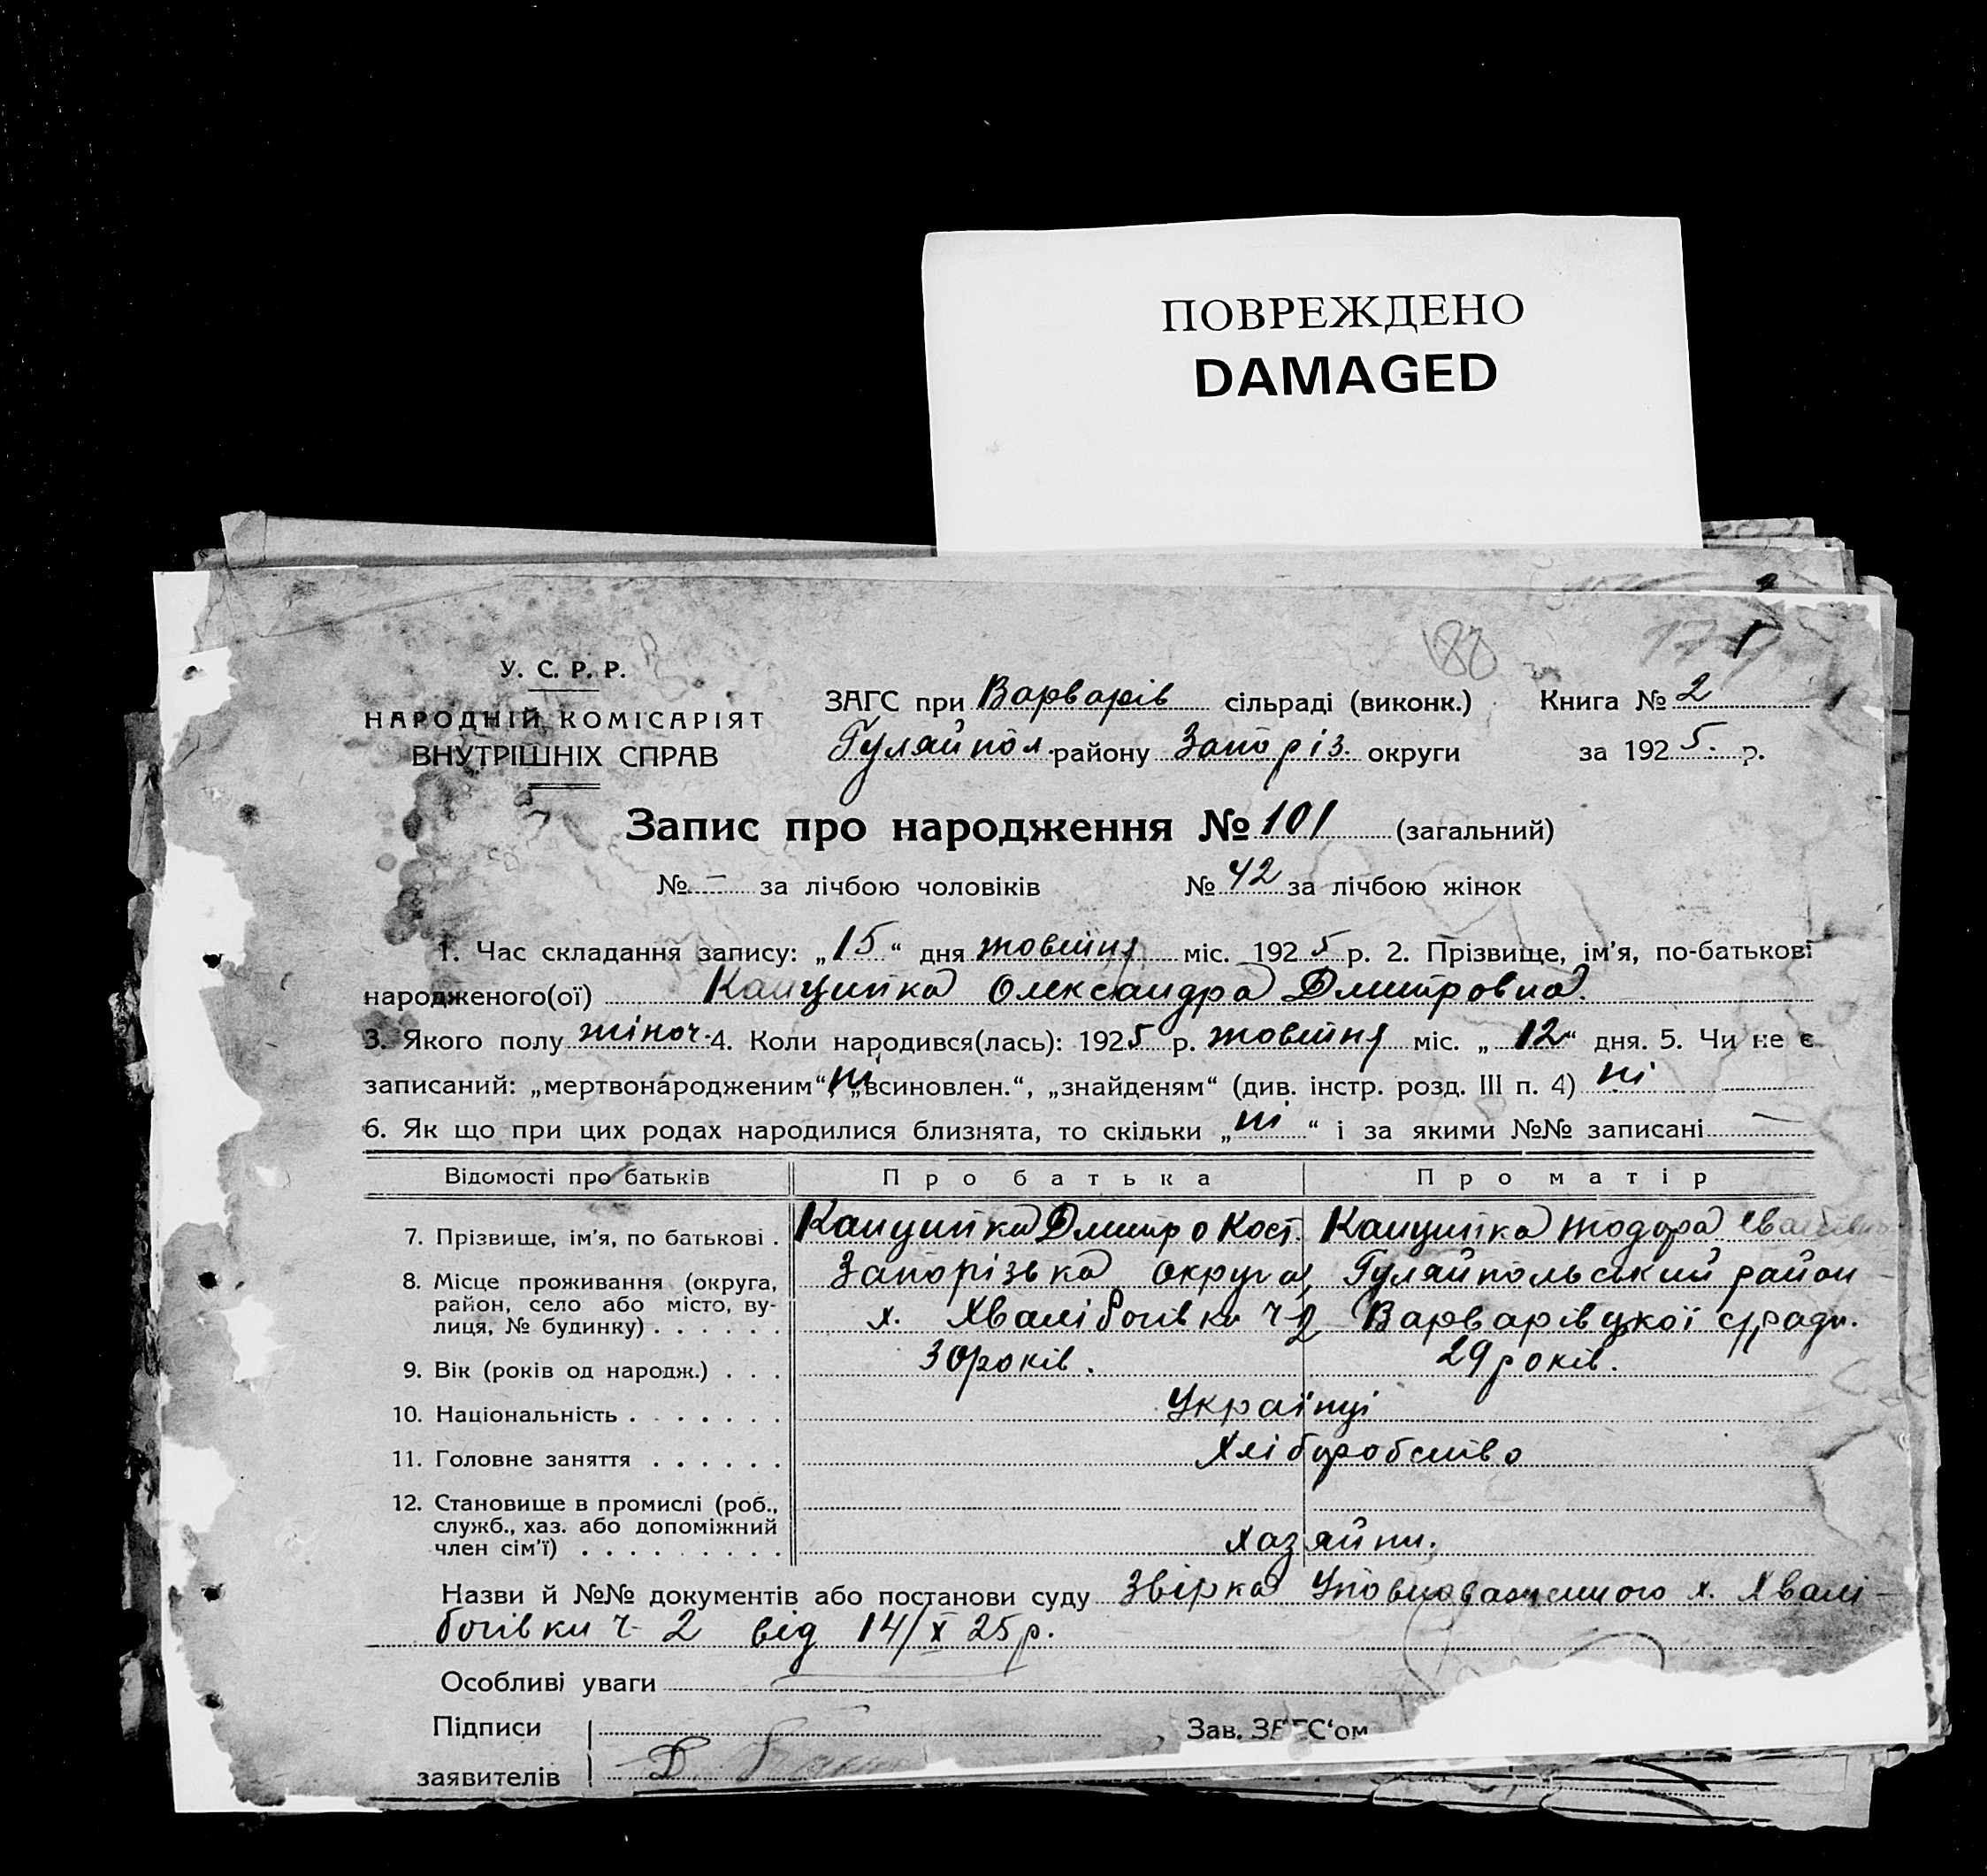 ПОВРЕЖДЕНО
DAMAGED
188
У. С. Р. Р.
НАРОДНІЙ КОМІСАРІЯТ
ВНУТРІШНІХ СПРАВ
ЗАГС при Варварів сільраді (виконк.) Книга № 2
Гуляйпол. району Запоріз. округи за 1925. р.
Запис про народження № 101 (загальний)
№ – за лічбою чоловіків № 42 за лічбою жінок
1. Час складання запису: „15“ дня жовтня міс. 1925 р. 2. Прізвище, ім'я, по-батькові
народженого(ої) Канципка Олександра Дмитровна.
3. Якого полу жіноч. 4. Коли народився(лась): 1925 р. жовтня міс. „12“ дня. 5. Чи не є
записаний: „мертвонародженим“ ні „всиновлен.“, „знайденям“ (див. інстр. розд. III п. 4) ні
6. Як що при цих родах народилися близнята, то скільки „ні“ і за якими №№ записані —
Відомості про батьків Про батька Про матір
7. Прізвище, ім'я, по батькові . Канципка Дмитро Кост. Канципка Тодора
8. Місце проживання (округа, Запорізька округа Гуляйпольський район
район, село або місто, ву-
лиця, № будинку) . . . . . . х. Хвалібогівка ч 2 Варварівцкої с/ради.
9. Вік (років од народж.) . . . 30 років. 29 років.
10. Національність . . . . . . . Українці
11. Головне заняття . . . . . . Хліборобство
12. Становище в промислі (роб.,
служб., хаз. або допоміжний
член сім'ї) . . . . . . . . . хазяйни.
Назви й №№ документів або постанови суду Звірка Уповноваженного х. Хвалі-
богівки ч 2 від 14/X 25 р.
Особливі уваги
Підписи Зав. ЗАГС'ом
заявителів Д.